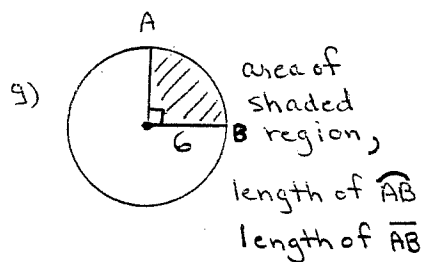 A
g)
area of
shaded
6 B region,
length of A͡B
length of A̅B̅